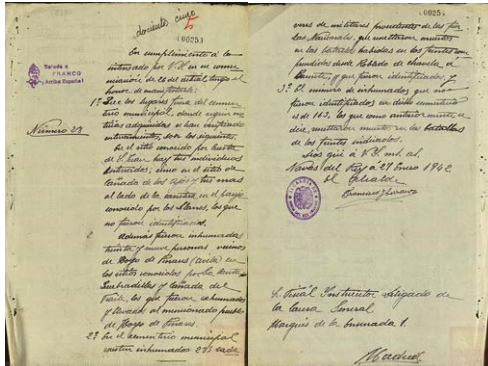 doscientos cinco
5
(0025)
Saludo a
FRANCO
¡Arriba España!
Número 23
En cumplimiento a lo
interesado por V.S. en su comu-
nicación de 26 del actual, tengo el
honor de manifestarle:
1º Que los lugares fuera del cemen-
terio municipal, donde según no-
ticias adquiridas se han verificado
enterramientos, son los siguientes.
En el sitio conocido por
hay tres individuos
en el sitio de
Cañada de los y tres más
al lado de la carretera en el paraje
conocido por los Llanos, los que
no fueron identificados.
Además fueron inhumadas
treinta y nueve personas vecinos
de Hoyo de Pinares (Avila) en
los sitios conocidos por la
y Cañada del
los que fueron exhumados
y llevados al mencionado pueblo
de Hoyo de Pinares.
2º En el cementerio municipal
existen inhumados 237 cada-
(0025)
veres de militares procedentes de las fi-
las Nacionales, que resultaron muertos
en las batallas habidas en los frentes com-
prendidos desde Robledo de Chavela a
y que fueron identificados.
3º El número de inhumados que no
fueron identificados en dicho cementerio
es de 163, los que como anteriormente se
dice resultaron muertos en las batallas
de los frentes indicados.
Dios gue a V.S. ms. as.
Navas del Rey a 27 Enero 1942
El Alcalde
S. Fiscal Instructor Delegado de
la Causa General
Marqués de la Ensenada 1.
Madrid